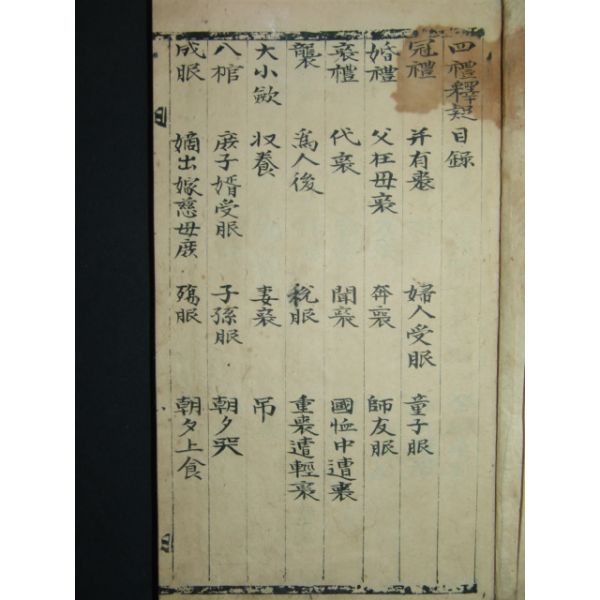 四禮釋疑目録
冠禮 并有喪 婦人受服 童子服
婚禮 父在母喪 奔喪 師友服
喪禮 代喪 聞喪 國恤中遭喪
襲 爲人後 税服 重喪遭輕喪
大小歛 收養 妻喪 吊
入棺 庶子婿受服 子孫服 朝夕哭
成服 嫡出嫁慈母庶 殤服 朝夕上食